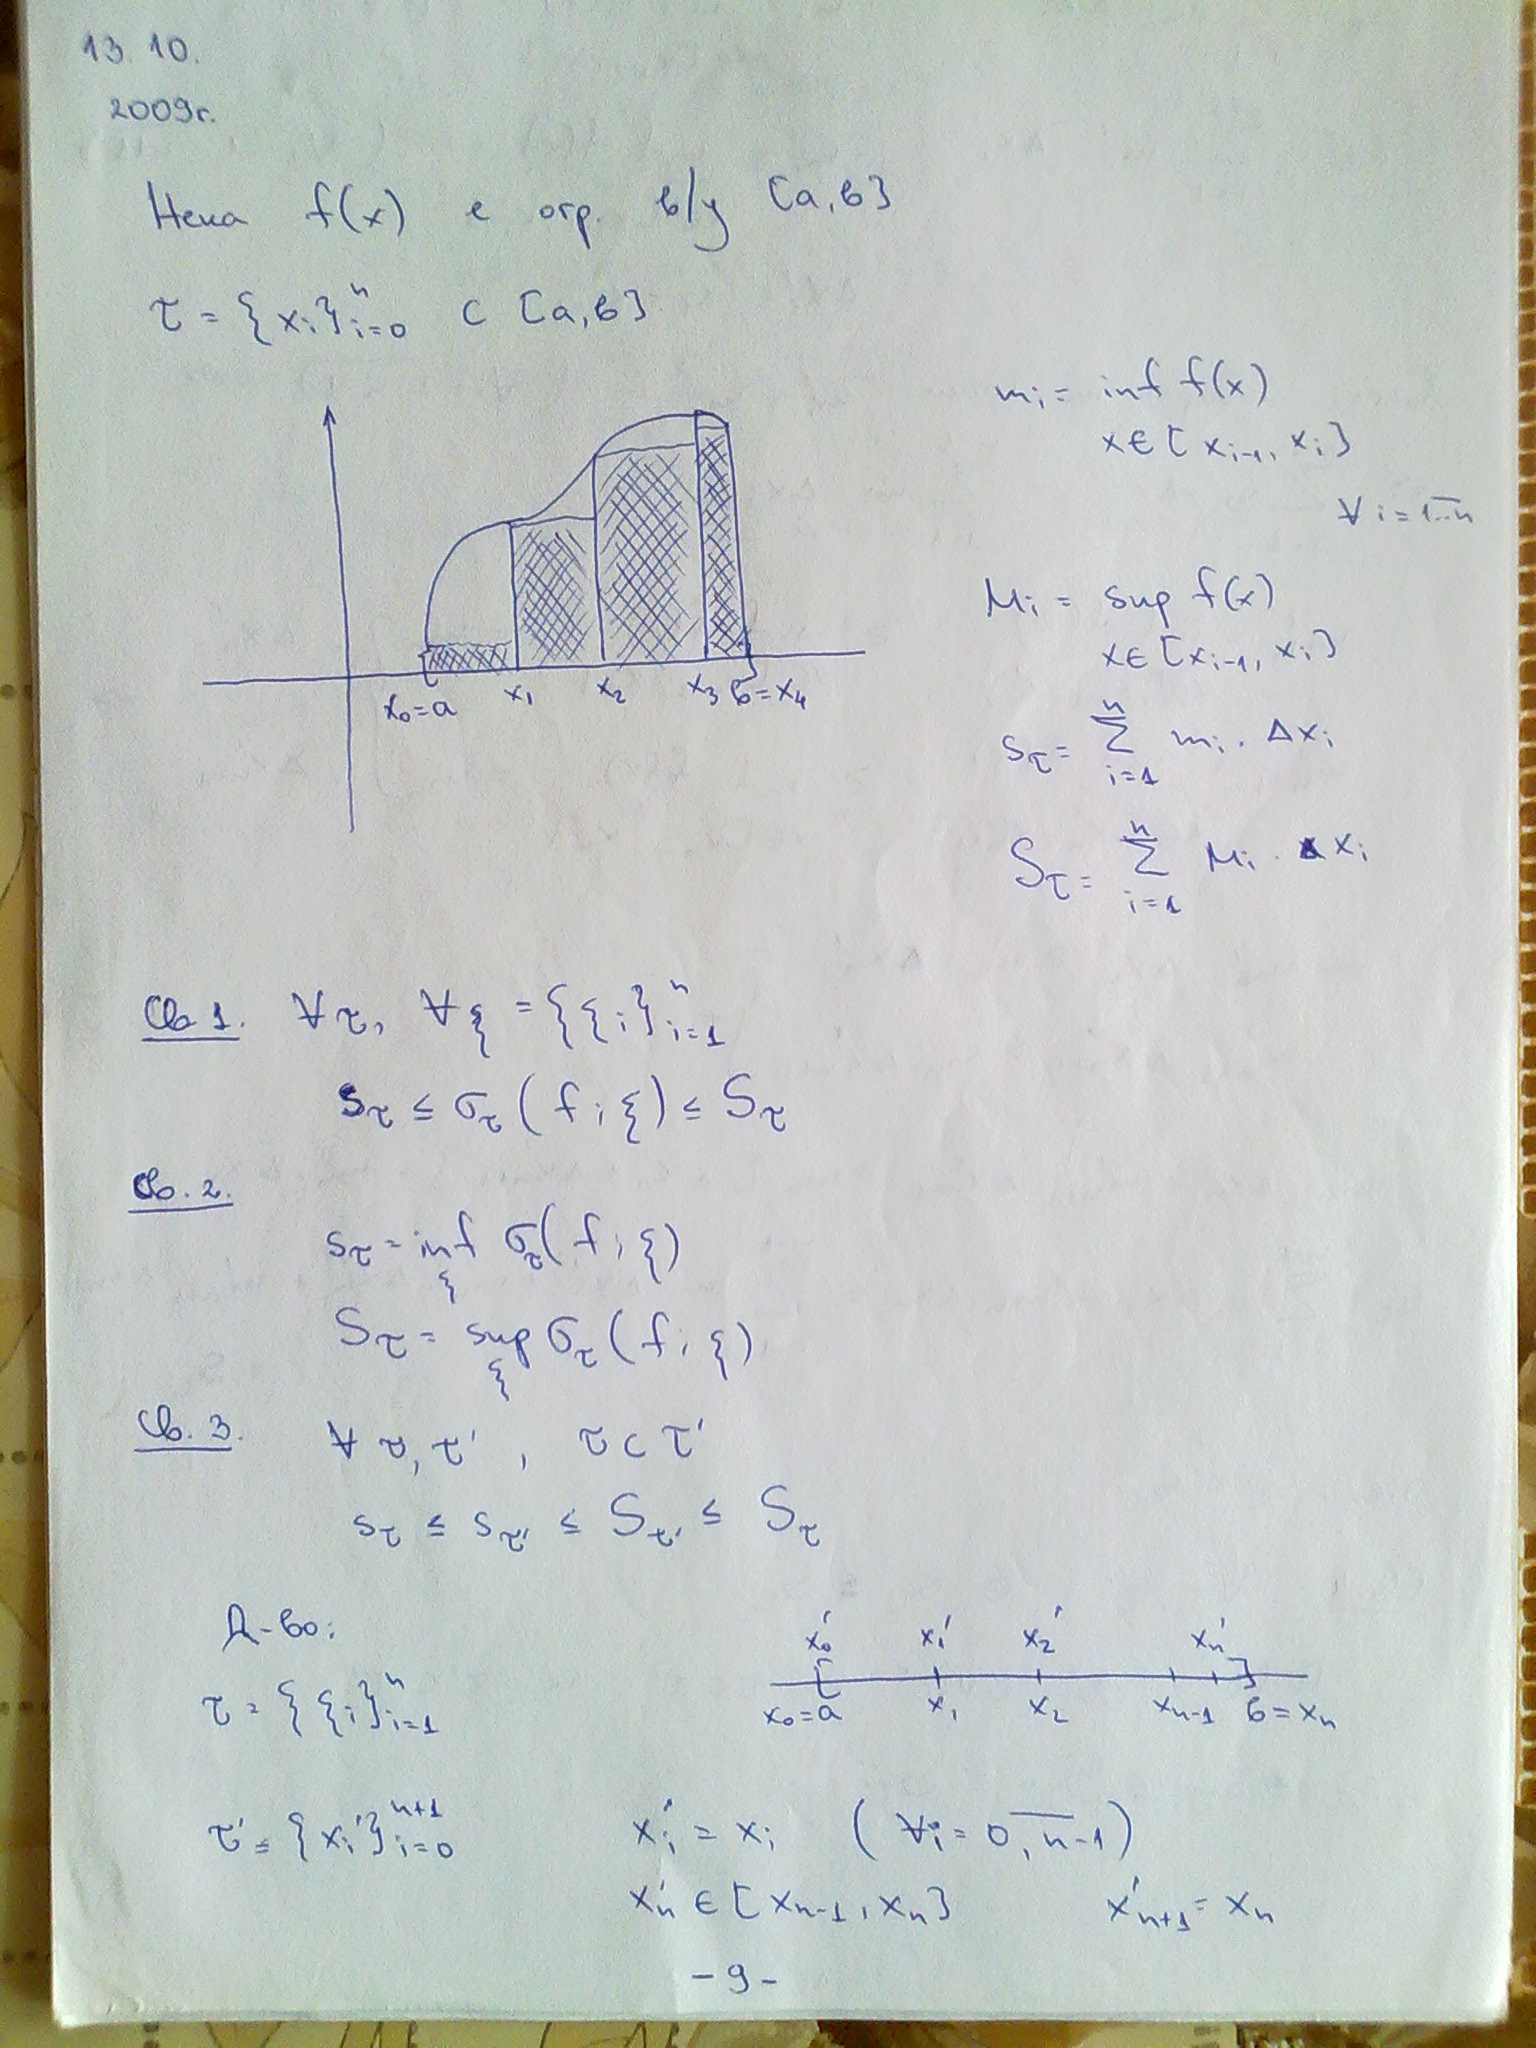 13. 10.
2009г.
Нека f(x) е огр. в/у [a,b]
τ = {xᵢ}ⁿᵢ₌₀ ⊂ [a,b]
mᵢ = inf f(x)
x∈[xᵢ₋₁, xᵢ]
∀ i = 1..n
Mᵢ = sup f(x)
x∈[xᵢ₋₁, xᵢ]
x₀=a x₁ x₂ x₃ b=x₄
s_τ = ∑ⁿᵢ₌₁ mᵢ . Δxᵢ
S_τ = ∑ⁿᵢ₌₁ Mᵢ . Δxᵢ
Св 1. ∀τ, ∀ξ = {ξᵢ}ⁿᵢ₌₁
s_τ ≤ σ_τ(f; ξ) ≤ S_τ
Св. 2.
s_τ = inf σ_τ(f; ξ)
ξ
S_τ = sup σ_τ(f; ξ)
ξ
Св. 3. ∀ τ, τ' , τ ⊂ τ'
s_τ ≤ s_τ' ≤ S_τ' ≤ S_τ
Д-во:
x₀' x₁' x₂' xₙ'
x₀=a x₁ x₂ xₙ₋₁ b=xₙ
τ = {ξᵢ}ⁿᵢ₌₁
τ' = {xᵢ'}ⁿ⁺¹ᵢ₌₀ xᵢ' = xᵢ (∀i = 0, n-1)
xₙ' ∈ [xₙ₋₁, xₙ] x'ₙ₊₁ = xₙ
- 9 -